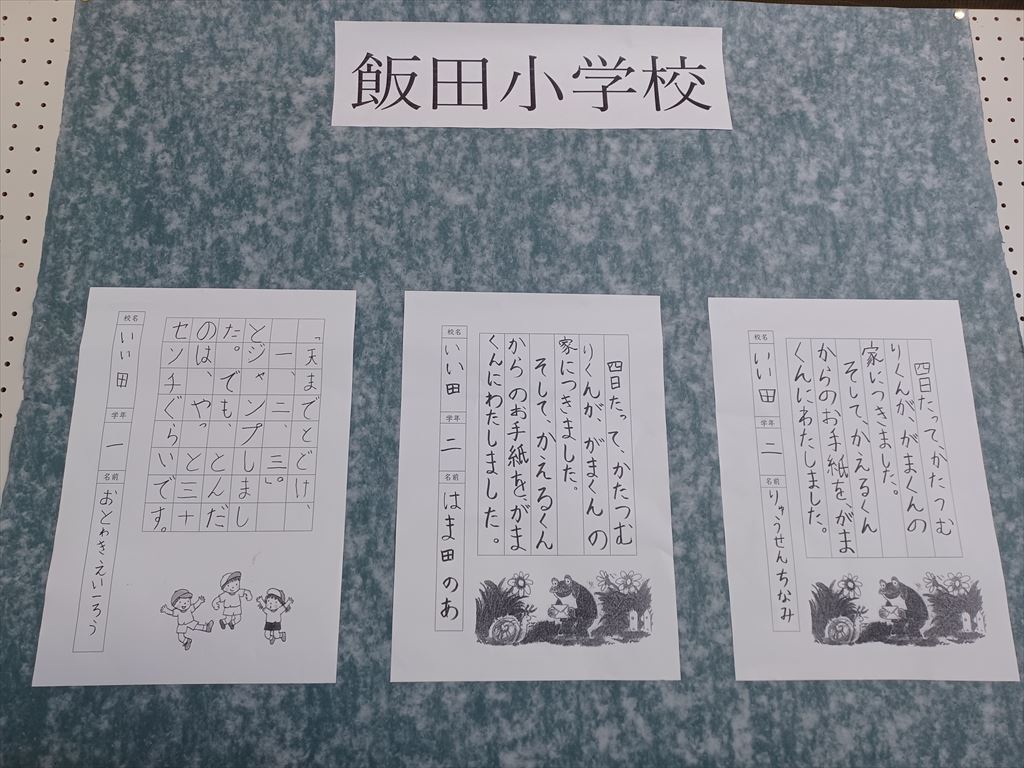 飯田小学校
四日たって、かたつむ
りくんが、がまくんの
家につきました。
そして、かえるくん
からのお手紙を、がま
くんにわたしました。
校名
いい田
学年
二
名前
りゅうせんちなみ
四日たって、かたつむ
りくんが、がまくんの
家につきました。
そして、かえるくん
からのお手紙を、がま
くんにわたしました。
校名
いい田
学年
二
名前
はま田のあ
「天までとどけ、
一、二、三。」
とジャンプしまし
た。でも、とんだ
のは、やっと三十
センチぐらいです。
校名
いい田
学年
一
名前
おとわきえいいちろう